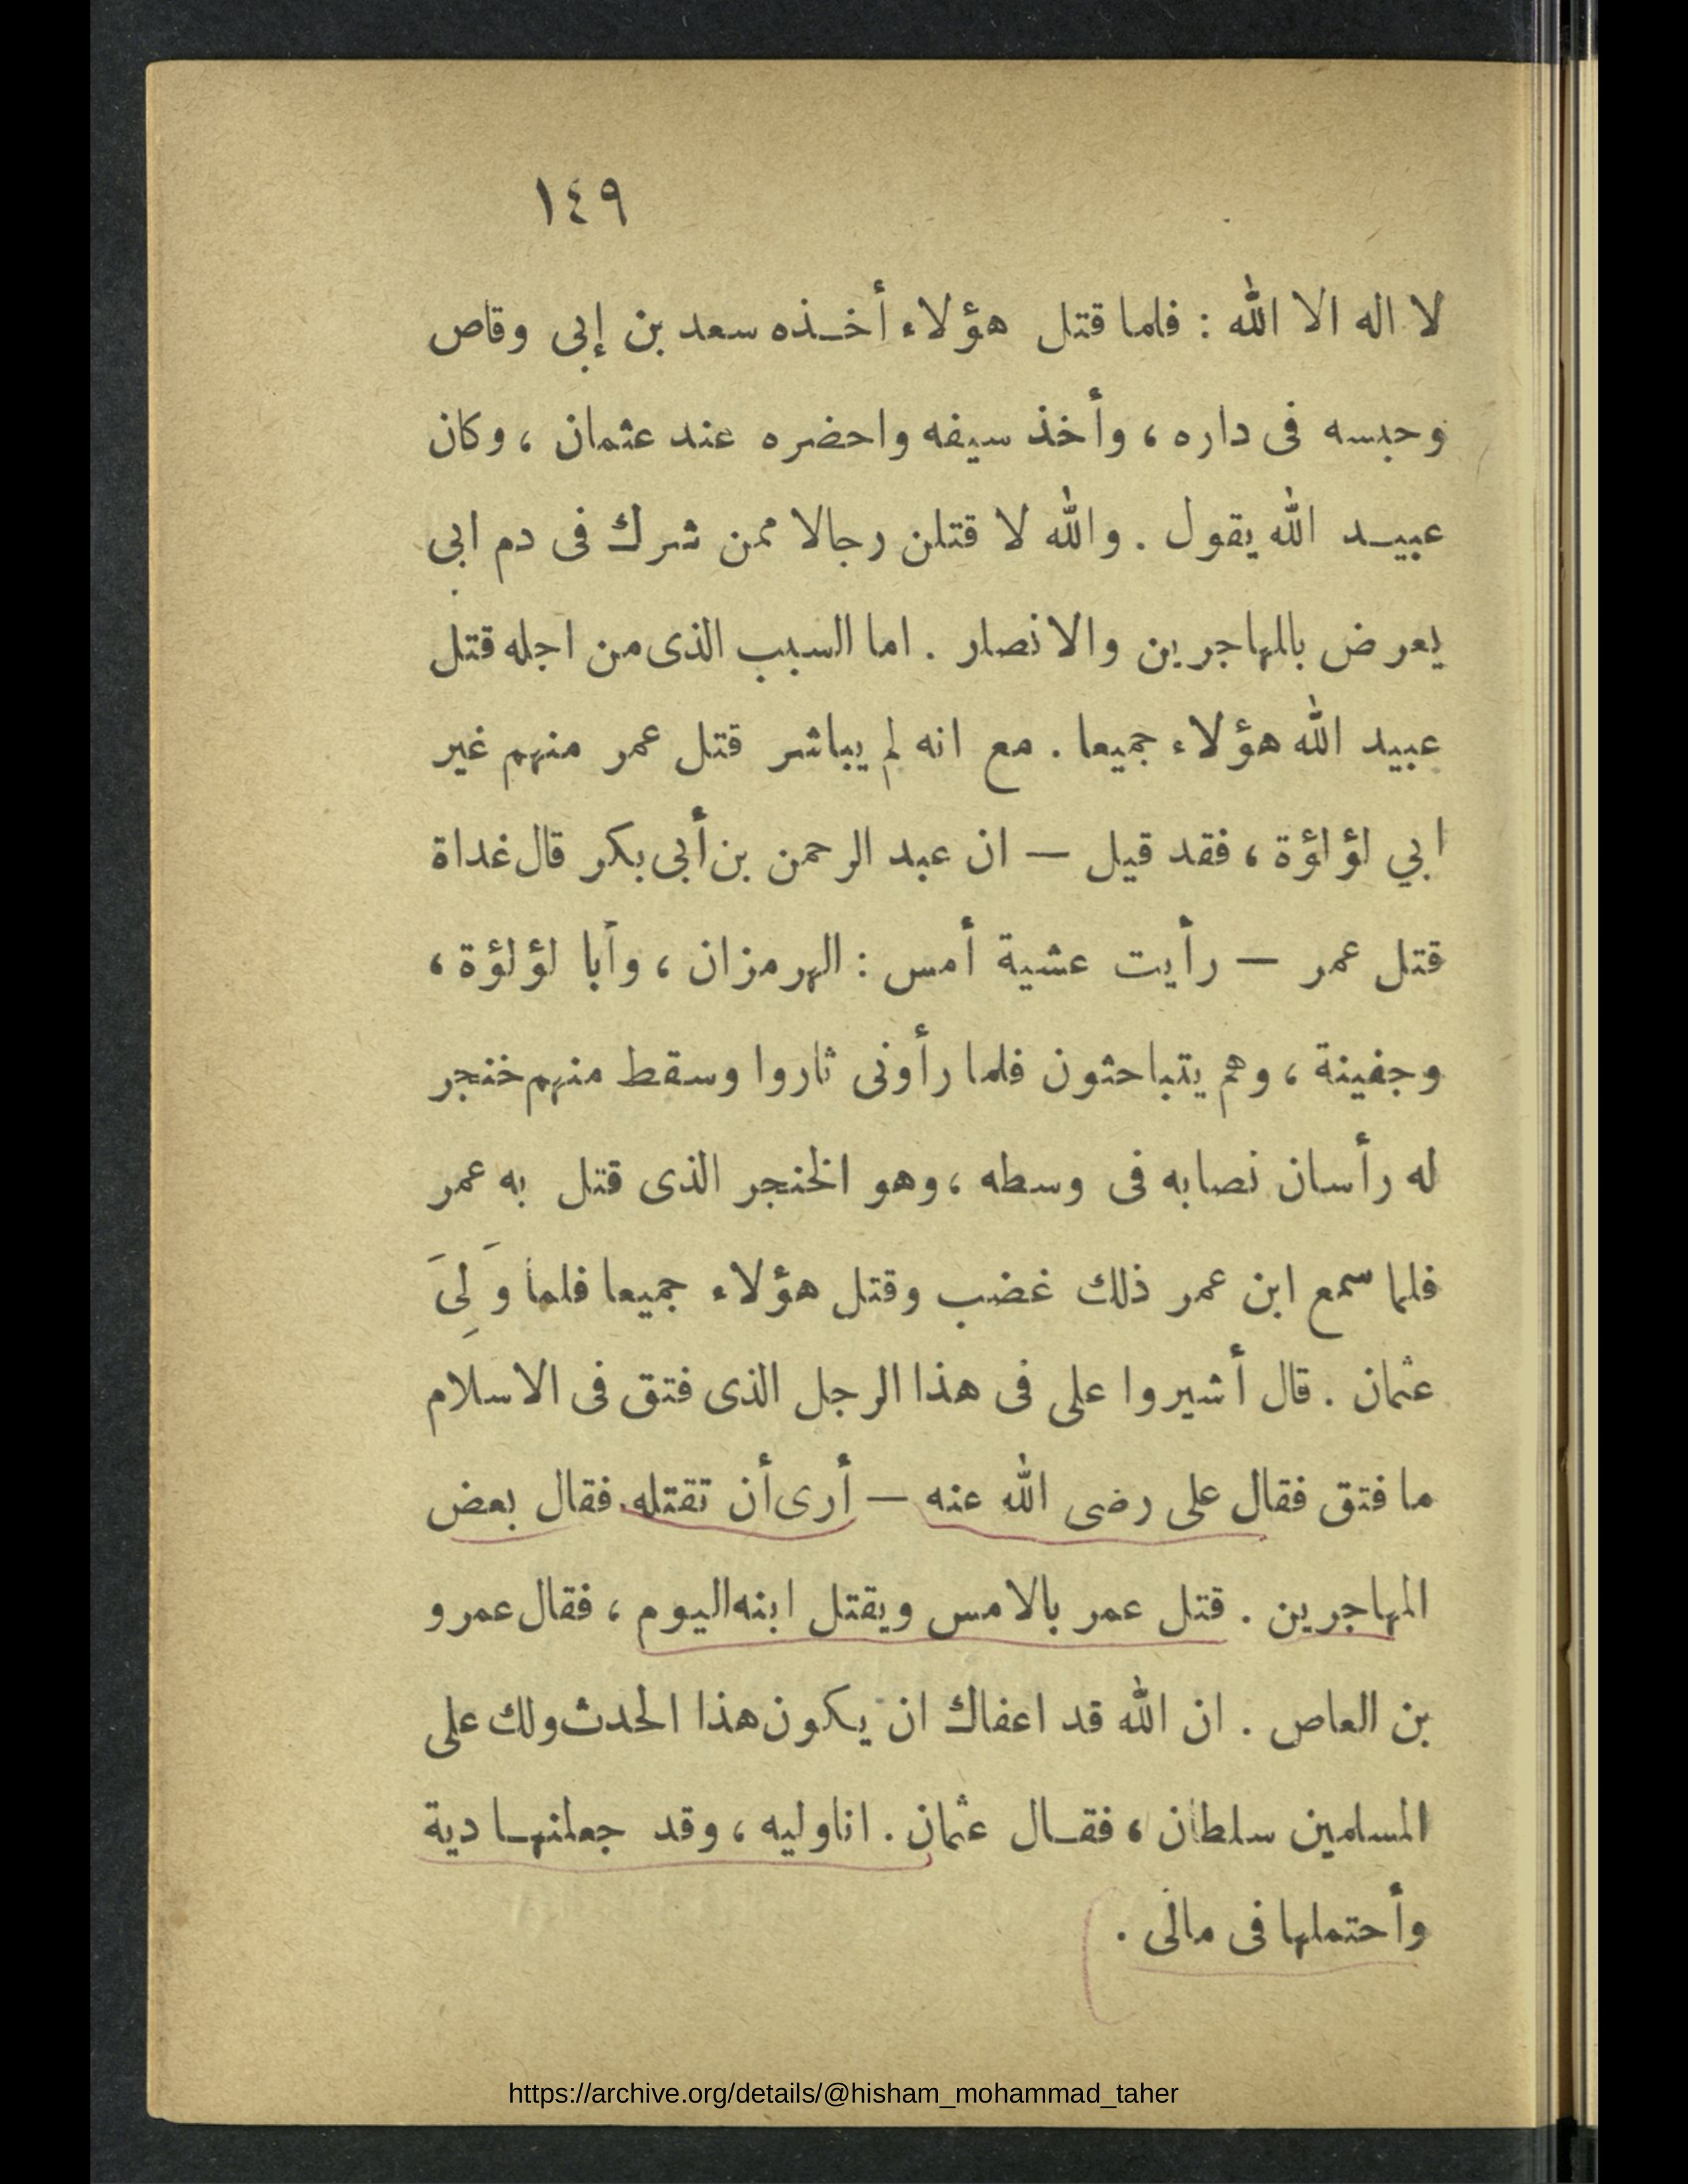 ١٤٩
لا اله الا الله : فلما قتل هؤلاء أخذه سعد بن إبى وقاص
وحبسه فى داره ، وأخذ سيفه واحضره عند عثمان ، وكان
عبيد الله يقول . والله لا قتلن رجالا ممن شرك فى دم ابى
يعرض بالمهاجرين والانصار . اما السبب الذى من اجله قتل
عبيد الله هؤلاء جميعا . مع انه لم يباشر قتل عمر منهم غير
ابي لؤلؤة ، فقد قيل — ان عبد الرحمن بن أبى بكر قال غداة
قتل عمر — رأيت عشية أمس : الهرمزان ، وأبا لؤلؤة ،
وجفينة ، وهم يتباحثون فلما رأونى ثاروا وسقط منهم خنجر
له رأسان نصابه فى وسطه ، وهو الخنجر الذى قتل به عمر
فلما سمع ابن عمر ذلك غضب وقتل هؤلاء جميعا فلما وَلِىَ
عثمان . قال أشيروا على فى هذا الرجل الذى فتق فى الاسلام
ما فتق فقال على رضى الله عنه — أرى أن تقتله . فقال بعض
المهاجرين . قتل عمر بالامس ويقتل ابنه اليوم ، فقال عمرو
بن العاص . ان الله قد اعفاك ان يكون هذا الحدث ولك على
المسلمين سلطان ، فقال عثمان . انا وليه ، وقد جعلنها دية
وأحتملها فى مالى .
https://archive.org/details/@hisham_mohammad_taher